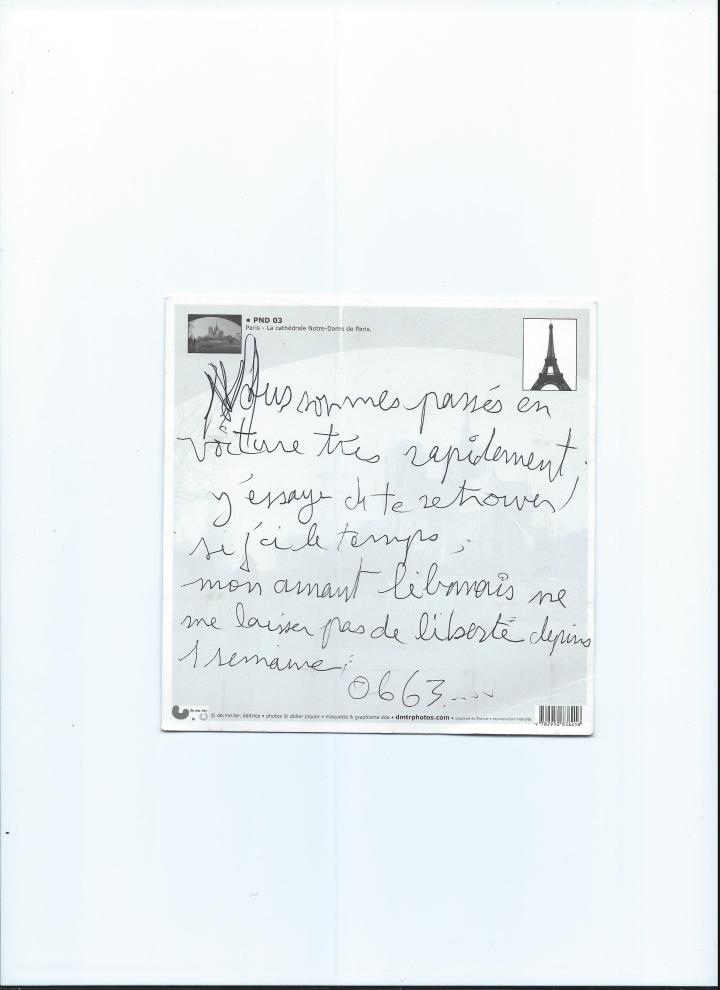 • PND 03
Paris - La cathédrale Notre-Dame de Paris.
Nous sommes passés en
voiture très rapidement.
j'essaye de te retrouver
si j'ai le temps,
mon amant libanais ne
me laisser pas de liberté depuis
1 semaine,
0663.....
de.me.ter.
© de.me.ter. éditrice • photos © didier piquer • maquette & graphisme dda • dmtrphotos.com • imprimé en France • reproduction interdite